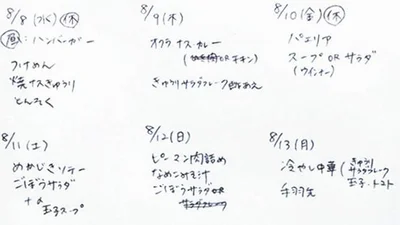 8/8 (水) 休
昼:ハンバーガー
つけめん
焼ナスきゅうり
とんそく
8/9 (木)
オクラナスカレー
(OR チキン)
きゅうりサラダフレークあえ
8/10 (金) 休
パエリア
スープ OR サラダ
(ウインナー)
8/11 (土)
めかじきソテー
ごぼうサラダ
玉子スープ
8/12 (日)
ピーマン肉詰め
なめこみそ汁
ごぼうサラダ OR
サラダフレーク
8/13 (月)
冷やし中華 (きゅうり
サラダフレーク
玉子・トマト
手羽先